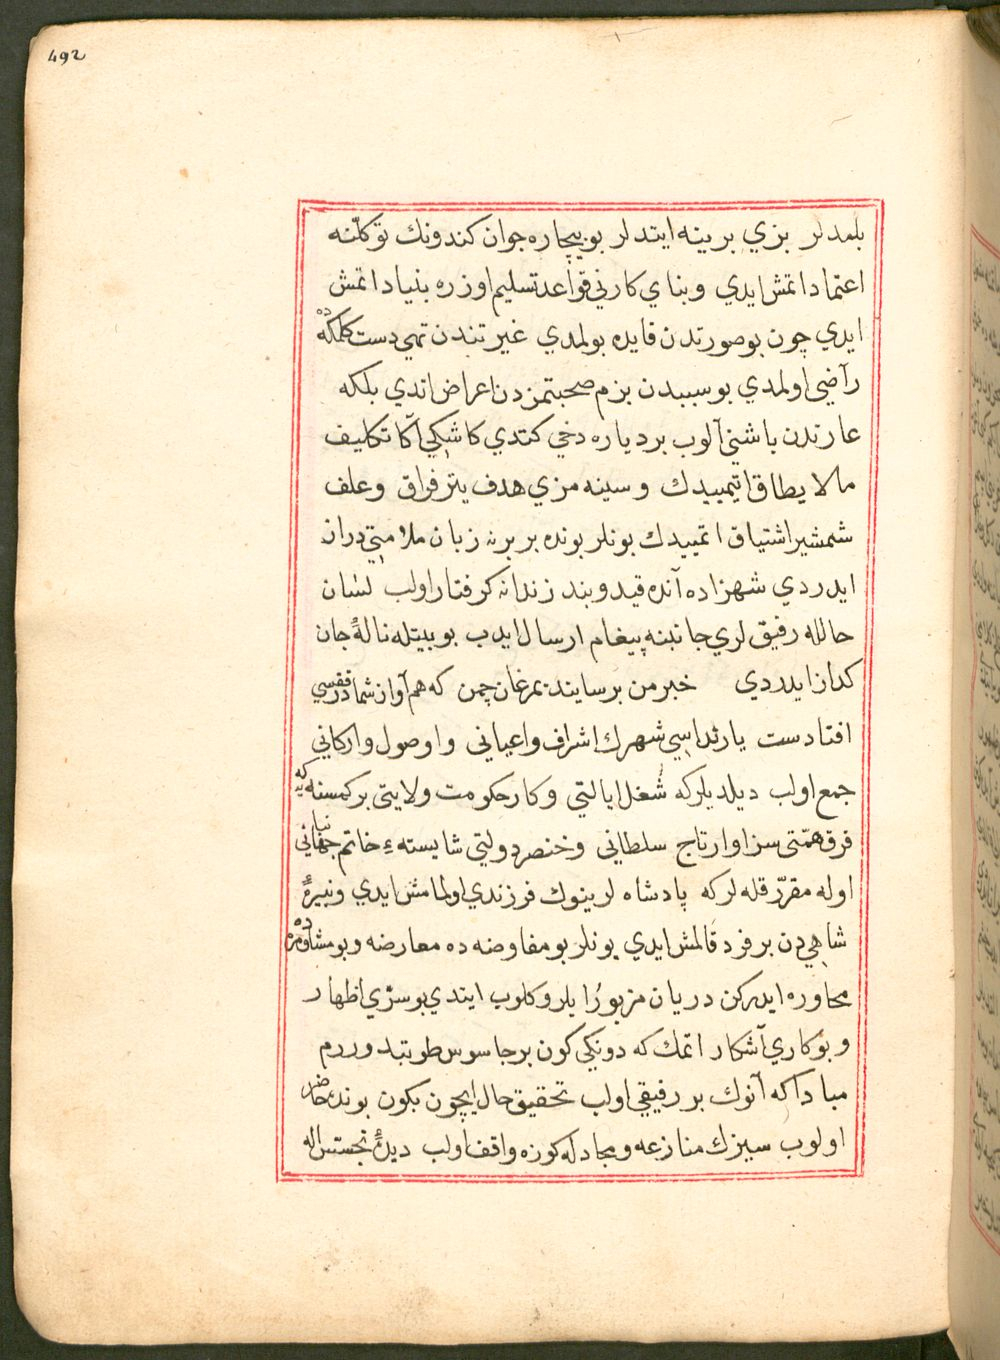 492
بلمدلر بزي برينه ايتدلر بو بيچاره جوان كندونك توكلنه
اعتماد اتمش ايدي وبناي كارني قواعد تسليم اوزره بنياد اتمش
ايدي چون بو صورتدن فايده بولمدي غيرتندن تهي دست كلمكه
راضي اولمدي بو سببدن بزم صحبتمزدن اعراض اتدي بلكه
عارندن باشني آلوب بر دياره دخي كتدي كاشكي آكا تكليف
مالا يطاق اتميیدك وسينه مزي هدف يتر فراق وعلف
شمشير اشتياق اتميیدك بونلر بونده بر برنه زبان ملامتي دراز
ايدردي شهزاده آنده قيد وبند زندانه كرفتار اولب لسان
حالله رفيقلري جانبنه پيغام ارسال ايدب بو بيتله ناله‌ٔ جان
كداز ايدردي خبر من برسانيد بمرغان چمن كه هم آواز شما در قفسي
افتادست يارنداسي شهرك اشراف واعياني واوصول واركاني
جمع اولب ديلديلركه شغل ايالتي وكار حكومت ولايتي بر كمسنه‌يه كه
فرق همتي سزاوار تاج سلطاني وخنصر دولتي شايسته‌ء خاتم جهانباني
اوله مقرر قله لركه پادشاه لرينوك فرزندي اولمامش ايدي ونبيره‌ٔ
شاهيدن بر فرد قالمش ايدي بونلر بو مفاوضه ده معارضه وبو مشاوره‌ده
محاوره ايدركن دربان مزبور ايلرو كلوب ايتدي بو سزي اظهار
وبو كاري آشكار اتمك كه دونكي كون بر جاسوس طوتبتدوررم
مبادا كه آنوك بر رفيقي اولب تحقيق حال ايچون بكون بونده حاضر
اولوب سيزك منازعه ومجادله كوزه واقف اولب ديده‌ٔ تجسس اله